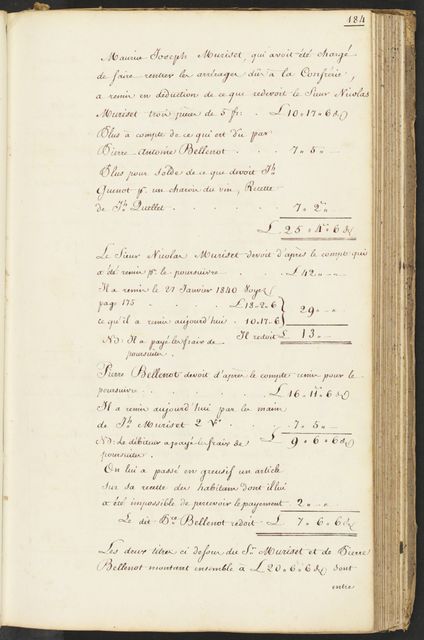 184
Maurice Joseph Muriset, qui avoit été chargé
de faire rentrer les arrérages dûs à la Confrérie,
a remis en déduction de ce que redevoit le Sieur Nicolas
Muriset trois pièces de 5 fr: . £ 10 " 17 " 6 &
Plus à compte de ce qui est dû par
Pierre Antoine Bellenot . . . 7 " 5 " —
Plus pour solde de ce que devoit Jh
Guenot pr. un charou du vin, Recette
de Jh Quellet . . . . . 7 " 2 " —
£ 25 " 4 " 6 &
Le Sieur Nicolas Muriset devoit d'après le compte qui
a été remis pr. le poursuivre . . . £ 42 " — " —
Il a remis le 27 Janvier 1840 Voyez
page 175 . . . . £ 18 " 2 " 6
ce qu'il a remis aujourd'hui . 10 " 17 " 6 } 29 " — " —
Nb: Il a payé les frais de Il redoit £ 13 " — " —
poursuites.
Pierre Bellenot devoit d'après le compte remis pour le
poursuivre . . . . . £ 16 " 11 " 6 &
Il a remis aujourd'hui par les mains
de Jh Muriset . . . 7 " 5 " —
Nb: Le débiteur a payé les frais de £ 9 " 6 " 6 &
poursuites.
On lui a passé en greusif un article
sur sa recette des habitans dont il lui
a été impossible de percevoir le payement 2 " — " —
Le dit Pre Bellenot redoit £ 7 " 6 " 6 &
Les deux titres ci dessus du Sr Muriset et de Pierre
Bellenot montant ensemble à £ 20 " 6 " 6 & sont
entre